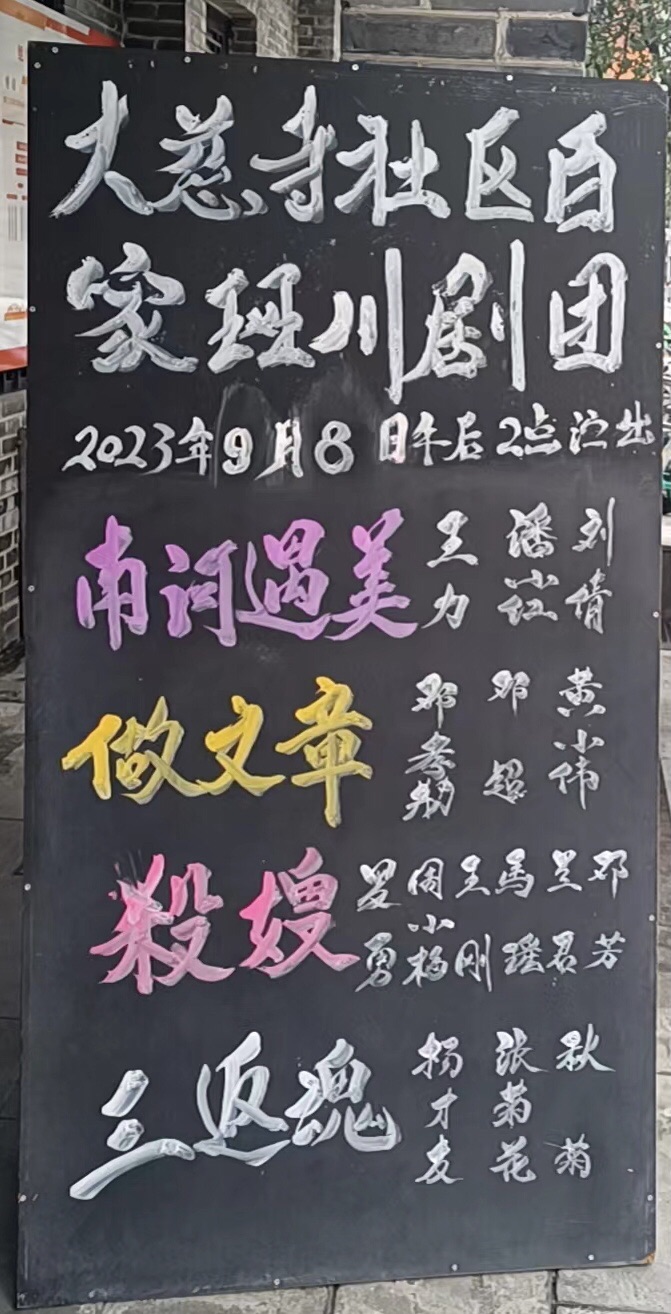 大慈寺社区百
家班川剧团
2023年9月8日午后2点演出
南河遇美 王力 潘小红 刘倩
做文章 邓孝勤 邓超 黄小伟
殺嫂 夏勇 周小梅 王刚 馬瑶 兰君 邓芳
三返魂 杨才友 张菊花 秋菊